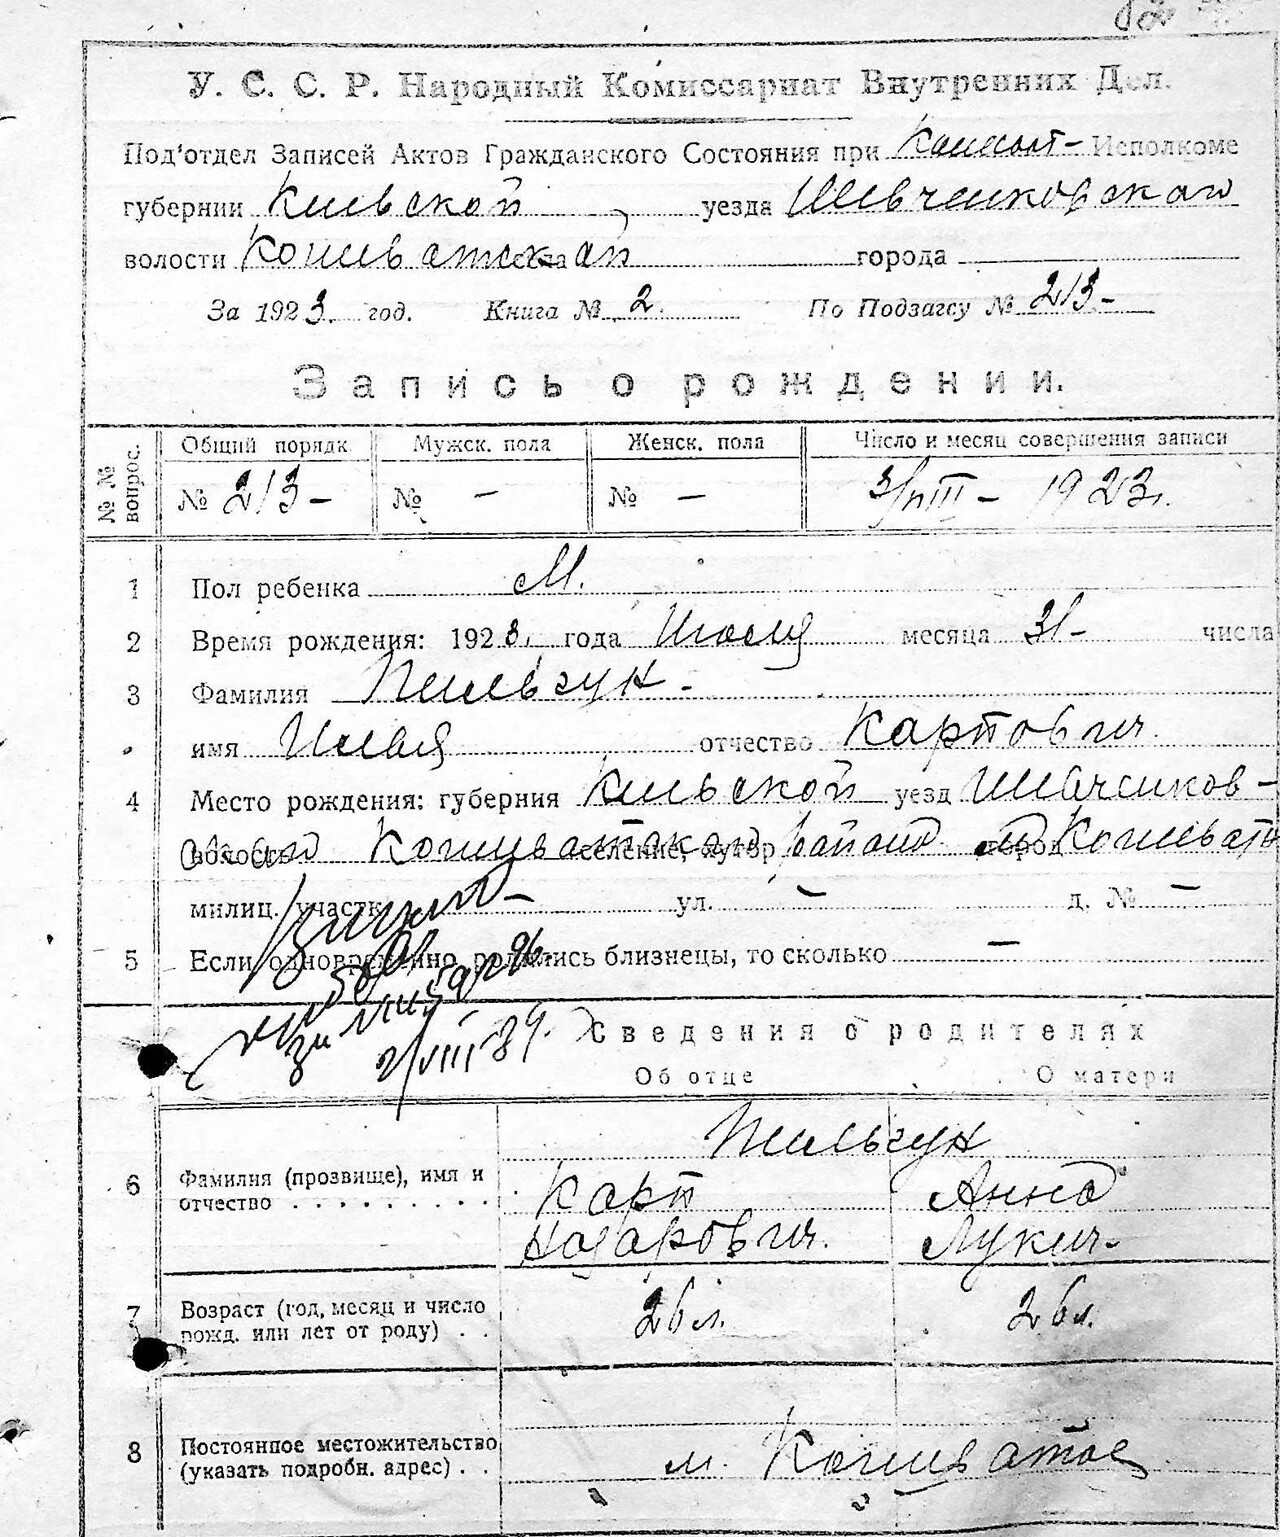 У. С. С. Р. Народный Комиссариат Внутренних Дел.
Под'отдел Записей Актов Гражданского Состояния при Исполкоме
губернии Киевской уезда Шевченковского
волости Кошеватской города
За 1923 год. Книга № 2. По Подзагсу № 213-
Запись о рождении.
№ № вопрос. Общий порядк. Мужск. пола Женск. пола Число и месяц совершения записи
№ 213- № - № - 3/VIII - 1923 г.
1 Пол ребенка М.
2 Время рождения: 1923. года Июля месяца 31- числа
3 Фамилия Пильчук -
имя Илья отчество Карпович.
4 Место рождения: губерния Киевской уезд Шевченков-
ского волость Кошеватского селение, хутор района м. город Кошевата
милиц. участк. - ул. - д. № -
5 Если одновременно родились близнецы, то сколько -
2/VIII-84.
Сведения о родителях
Об отце О матери
Пильчук
6 Фамилия (прозвище), имя и Карп Анна
отчество . . . . . . . . . Назарович. Лукич.
7 Возраст (год, месяц и число 26 л. 26 л.
рожд. или лет от роду) . .
8 Постоянное местожительство м. Кошеватое
(указать подробн. адрес) . .